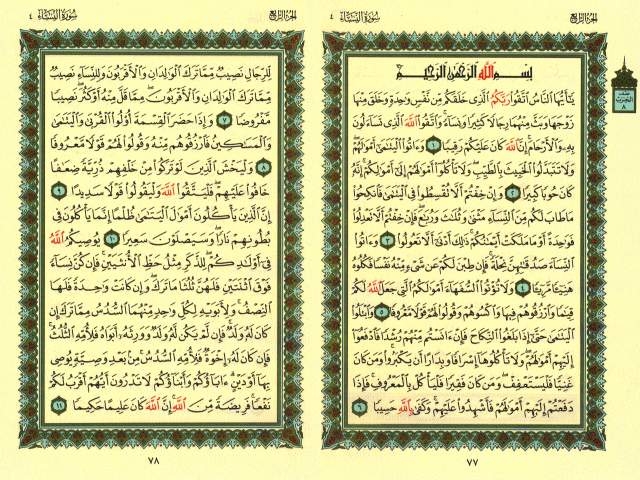 الجزء الرابع
سورة النساء ٤
بسم الله الرحمن الرحيم
يَٰٓأَيُّهَا النَّاسُ اتَّقُوا رَبَّكُمُ الَّذِى خَلَقَكُم مِّن نَّفْسٍ وَٰحِدَةٍ وَخَلَقَ مِنْهَا
زَوْجَهَا وَبَثَّ مِنْهُمَا رِجَالًا كَثِيرًا وَنِسَآءً وَاتَّقُوا اللَّهَ الَّذِى تَسَآءَلُونَ
بِهِۦ وَالْأَرْحَامَ إِنَّ اللَّهَ كَانَ عَلَيْكُمْ رَقِيبًا ١ وَءَاتُوا الْيَتَٰمَىٰٓ أَمْوَٰلَهُمْ
وَلَا تَتَبَدَّلُوا الْخَبِيثَ بِالطَّيِّبِ وَلَا تَأْكُلُوٓا أَمْوَٰلَهُمْ إِلَىٰٓ أَمْوَٰلِكُمْ إِنَّهُۥ
كَانَ حُوبًا كَبِيرًا ٢ وَإِنْ خِفْتُمْ أَلَّا تُقْسِطُوا فِى الْيَتَٰمَىٰ فَانكِحُوا
مَا طَابَ لَكُم مِّنَ النِّسَآءِ مَثْنَىٰ وَثُلَٰثَ وَرُبَٰعَ فَإِنْ خِفْتُمْ أَلَّا تَعْدِلُوا
فَوَٰحِدَةً أَوْ مَا مَلَكَتْ أَيْمَٰنُكُمْ ذَٰلِكَ أَدْنَىٰٓ أَلَّا تَعُولُوا ٣ وَءَاتُوا
النِّسَآءَ صَدُقَٰتِهِنَّ نِحْلَةً فَإِن طِبْنَ لَكُمْ عَن شَىْءٍ مِّنْهُ نَفْسًا فَكُلُوهُ
هَنِيٓـًٔا مَّرِيٓـًٔا ٤ وَلَا تُؤْتُوا السُّفَهَآءَ أَمْوَٰلَكُمُ الَّتِى جَعَلَ اللَّهُ لَكُمْ
قِيَٰمًا وَارْزُقُوهُمْ فِيهَا وَاكْسُوهُمْ وَقُولُوا لَهُمْ قَوْلًا مَّعْرُوفًا ٥ وَابْتَلُوا
الْيَتَٰمَىٰ حَتَّىٰٓ إِذَا بَلَغُوا النِّكَاحَ فَإِنْ ءَانَسْتُم مِّنْهُمْ رُشْدًا فَادْفَعُوٓا
إِلَيْهِمْ أَمْوَٰلَهُمْ وَلَا تَأْكُلُوهَآ إِسْرَافًا وَبِدَارًا أَن يَكْبَرُوا وَمَن كَانَ
غَنِيًّا فَلْيَسْتَعْفِفْ وَمَن كَانَ فَقِيرًا فَلْيَأْكُلْ بِالْمَعْرُوفِ فَإِذَا
دَفَعْتُمْ إِلَيْهِمْ أَمْوَٰلَهُمْ فَأَشْهِدُوا عَلَيْهِمْ وَكَفَىٰ بِاللَّهِ حَسِيبًا ٦
٧٧
الحزب
٨
الجزء الرابع
سورة النساء ٤
لِّلرِّجَالِ نَصِيبٌ مِّمَّا تَرَكَ الْوَٰلِدَانِ وَالْأَقْرَبُونَ وَلِلنِّسَآءِ نَصِيبٌ
مِّمَّا تَرَكَ الْوَٰلِدَانِ وَالْأَقْرَبُونَ مِمَّا قَلَّ مِنْهُ أَوْ كَثُرَ نَصِيبًا
مَّفْرُوضًا ٧ وَإِذَا حَضَرَ الْقِسْمَةَ أُولُوا الْقُرْبَىٰ وَالْيَتَٰمَىٰ
وَالْمَسَٰكِينُ فَارْزُقُوهُم مِّنْهُ وَقُولُوا لَهُمْ قَوْلًا مَّعْرُوفًا
٨ وَلْيَخْشَ الَّذِينَ لَوْ تَرَكُوا مِنْ خَلْفِهِمْ ذُرِّيَّةً ضِعَٰفًا
خَافُوا عَلَيْهِمْ فَلْيَتَّقُوا اللَّهَ وَلْيَقُولُوا قَوْلًا سَدِيدًا ٩
إِنَّ الَّذِينَ يَأْكُلُونَ أَمْوَٰلَ الْيَتَٰمَىٰ ظُلْمًا إِنَّمَا يَأْكُلُونَ فِى
بُطُونِهِمْ نَارًا وَسَيَصْلَوْنَ سَعِيرًا ١٠ يُوصِيكُمُ اللَّهُ
فِىٓ أَوْلَٰدِكُمْ لِلذَّكَرِ مِثْلُ حَظِّ الْأُنثَيَيْنِ فَإِن كُنَّ نِسَآءً
فَوْقَ اثْنَتَيْنِ فَلَهُنَّ ثُلُثَا مَا تَرَكَ وَإِن كَانَتْ وَٰحِدَةً فَلَهَا
النِّصْفُ وَلِأَبَوَيْهِ لِكُلِّ وَٰحِدٍ مِّنْهُمَا السُّدُسُ مِمَّا تَرَكَ إِن
كَانَ لَهُۥ وَلَدٌ فَإِن لَّمْ يَكُن لَّهُۥ وَلَدٌ وَوَرِثَهُۥٓ أَبَوَاهُ فَلِأُمِّهِ الثُّلُثُ
فَإِن كَانَ لَهُۥٓ إِخْوَةٌ فَلِأُمِّهِ السُّدُسُ مِنۢ بَعْدِ وَصِيَّةٍ يُوصِى
بِهَآ أَوْ دَيْنٍ ءَابَآؤُكُمْ وَأَبْنَآؤُكُمْ لَا تَدْرُونَ أَيُّهُمْ أَقْرَبُ لَكُمْ
نَفْعًا فَرِيضَةً مِّنَ اللَّهِ إِنَّ اللَّهَ كَانَ عَلِيمًا حَكِيمًا ١١
٧٨